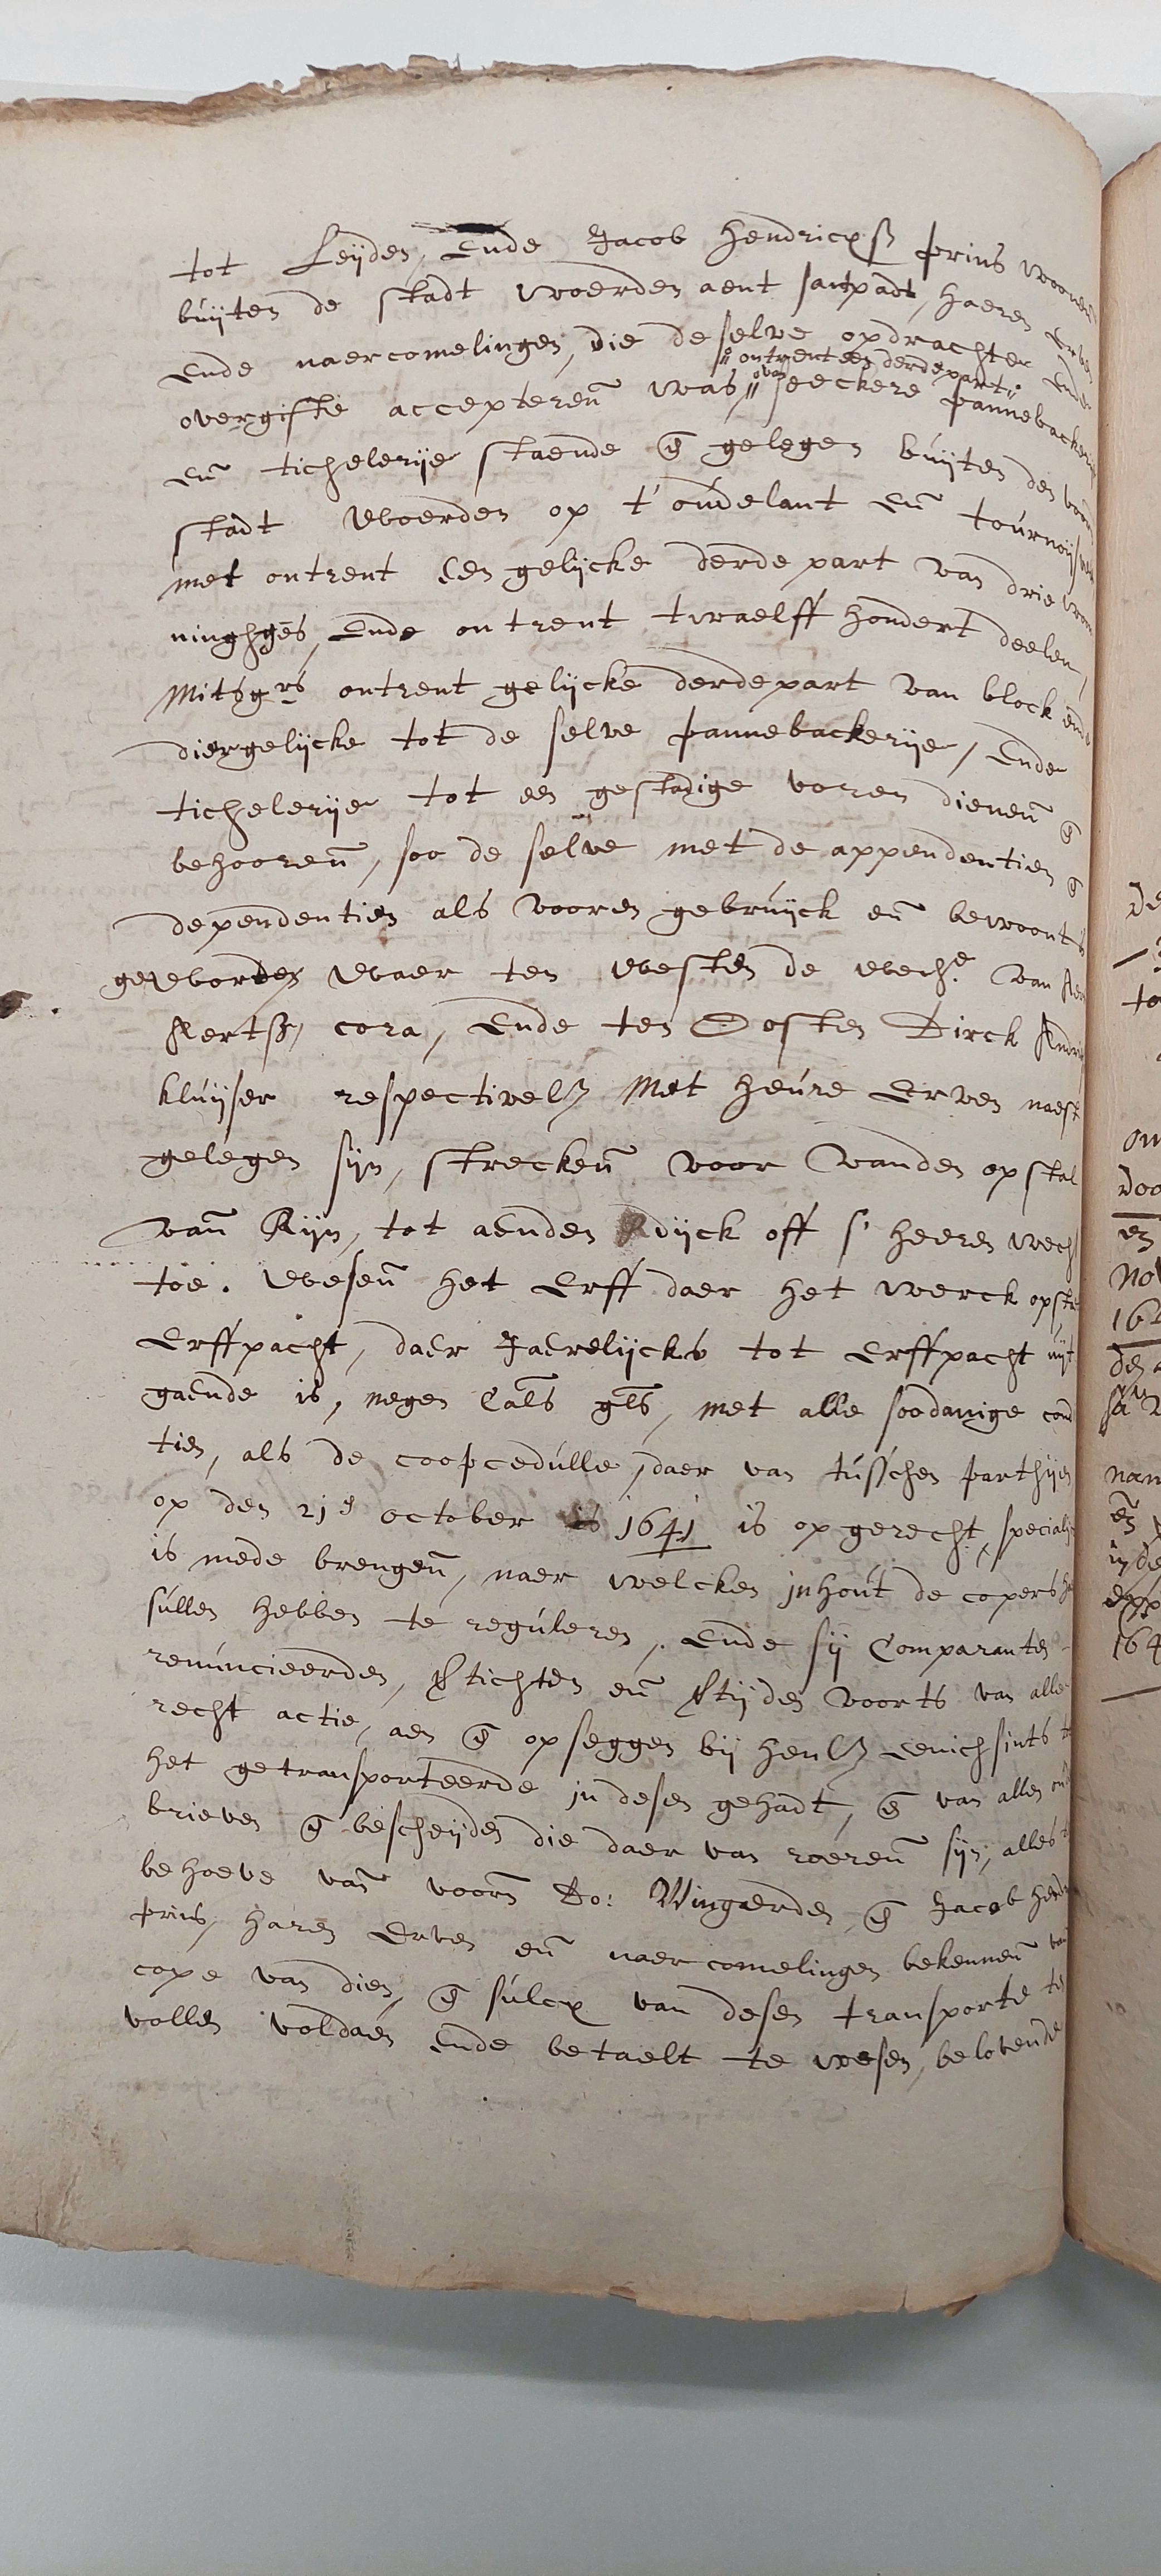 tot Leijden, Ende Jacob Hendricxsz prins
buijten de stadt woerden aent santpadt, haeren Erven
Ende naercomelingen, die de selve opdrachte Ende
" ontrent een derdepart "
overgifte accepteren̄ was " van seeckere pannebackerije
En̄ tichelerije staende en̄ gelegen buijten den voorn
stadt Woerden op t'oudelant en̄
met ontrent Een gelijcke derde part van drie woo
ninghges, Ende ontrent twaelff hondert deelen,
Mitsgrs ontrent gelijcke derdepart van block ende
diergelijcke tot de selve pannebackerije, Ende
tichelerije tot een gestadige voren dienen̄ en̄
behooren̄, soo de selve met de appendentien en̄
dependentien als vooren gebruijck en̄ bewoont is
geworden Waer ten Westen de Wede van
Aertsz, cora, Ende ten Oosten Dirck
kluijser respectivelz Met heure Erven naest
gelegen sijn, strecken̄ voor Vanden opstal
van̄ Rijn, tot aenden dijck off s'heeren wech
toe. Wesen̄ het Erff daer het werck opstaet
Erffpacht, daer Jaerelijcks tot Erffpacht uijt
gaende is, negen Cals gls, met alle soodanige condi
tien, als de coopcedulle, daer van tusschen parthijen
op den 21e october 1641 is opgerecht,
is mede brengen̄, naer welcken inhout de copers
sullen hebben te reguleren. Ende sij Comparanten
renuncieerden, Stichten en̄ Stijden voorts van alle
recht actie, aen en̄ opseggen bij henlz Eenichsints
het getransporteerde in desen gehadt, en̄ van allen oude
brieven en̄ bescheijden die daer van roeren̄ sijn, alles
behoeve van̄ voorn̄ Do: Wingaerden en̄ Jacob
prins, haren Erven en̄ naercomelingen bekennen̄ van
cope van dien, en̄ sulcx van desen transporte te
vollen voldaen Ende betaelt te wesen, belovende